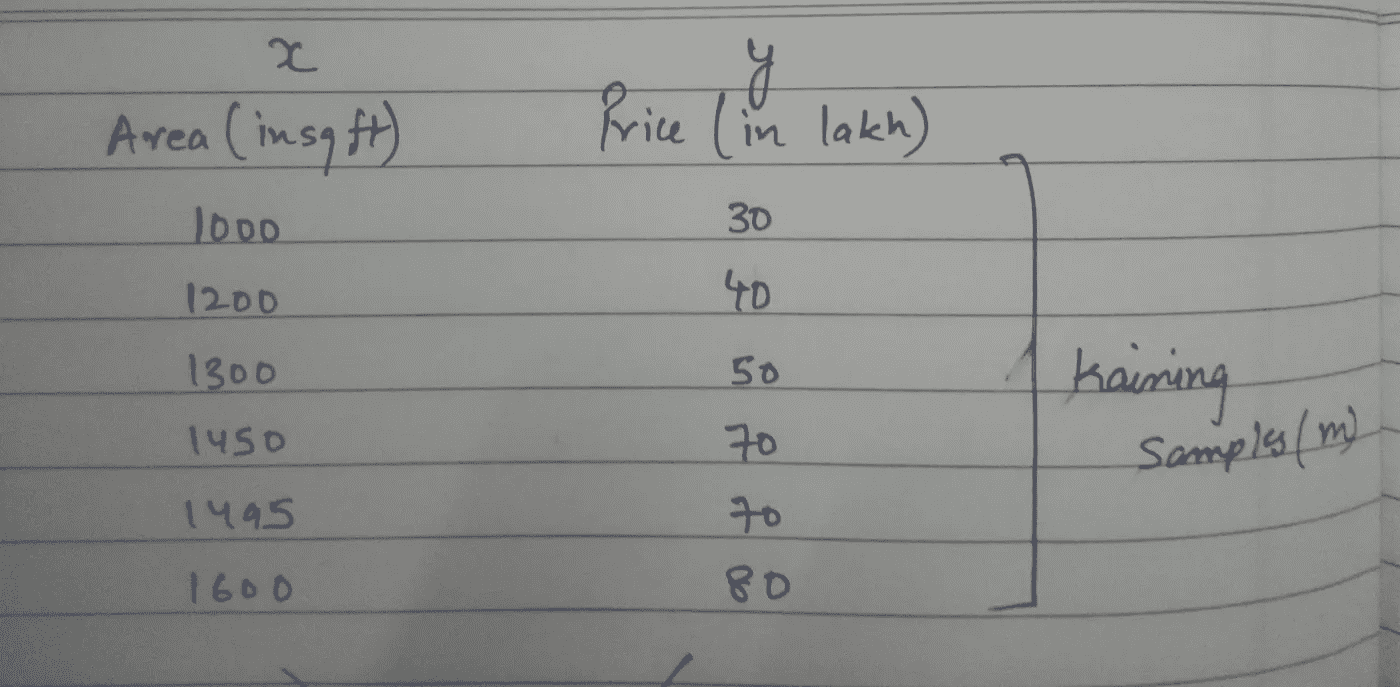 x y
Area (in sq ft) Price (in lakh)
1000 30
1200 40
1300 50
1450 70
1495 70
1600 80
training
Samples (m)